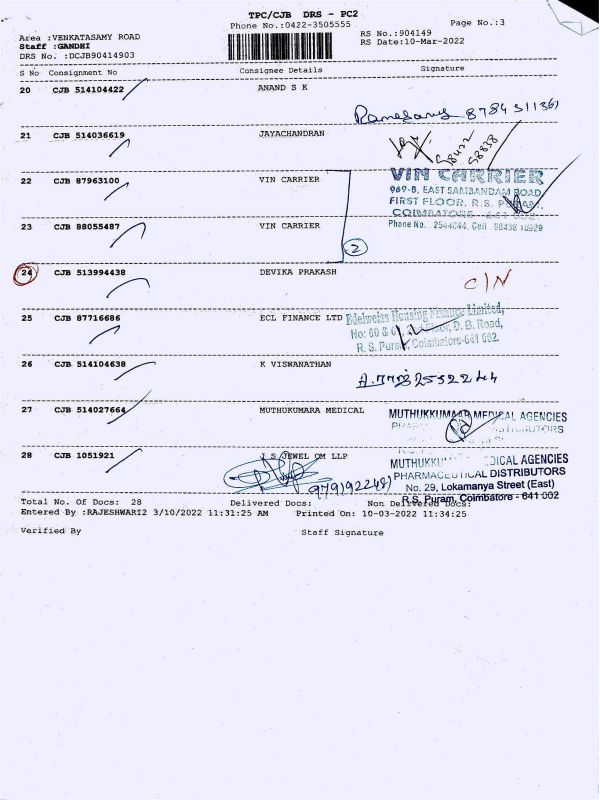 TPC/CJB DRS - PC2
Phone No.:0422-3505555
Page No.:3
Area :VENKATASAMY ROAD
Staff :GANDHI
DRS No. :DCJB90414903
RS No.:904149
RS Date:10-Mar-2022
S No Consignment No Consignee Details Signature
20 CJB 514104422 ANAND S K
21 CJB 514036619 JAYACHANDRAN
22 CJB 87963100 VIN CARRIER
VIN CARRIER
969-B, EAST SAMBANDAM ROAD
FIRST FLOOR, R.S. PURAM,
COIMBATORE
23 CJB 88055487 VIN CARRIER
Phone No.
2
24 CJB 513994438 DEVIKA PRAKASH
C/N
25 CJB 87716686 ECL FINANCE LTD
Edelweiss Housing Finance Limited,
Floor, D. B. Road,
R. S. Puram, Coimbatore-641 002.
26 CJB 514104638 K VISWANATHAN
27 CJB 514027664 MUTHUKUMARA MEDICAL
MUTHUKKUMAAR MEDICAL AGENCIES
28 CJB 1051921 J S JEWEL OM LLP
DICAL AGENCIES
PHARMACEUTICAL DISTRIBUTORS
No. 29, Lokamanya Street (East)
R.S. Puram, Coimbatore - 641 002
Total No. Of Docs: 28 Delivered Docs: Non Delivered Docs:
Entered By :RAJESHWARI2 3/10/2022 11:31:25 AM Printed On: 10-03-2022 11:34:25
Verified By Staff Signature